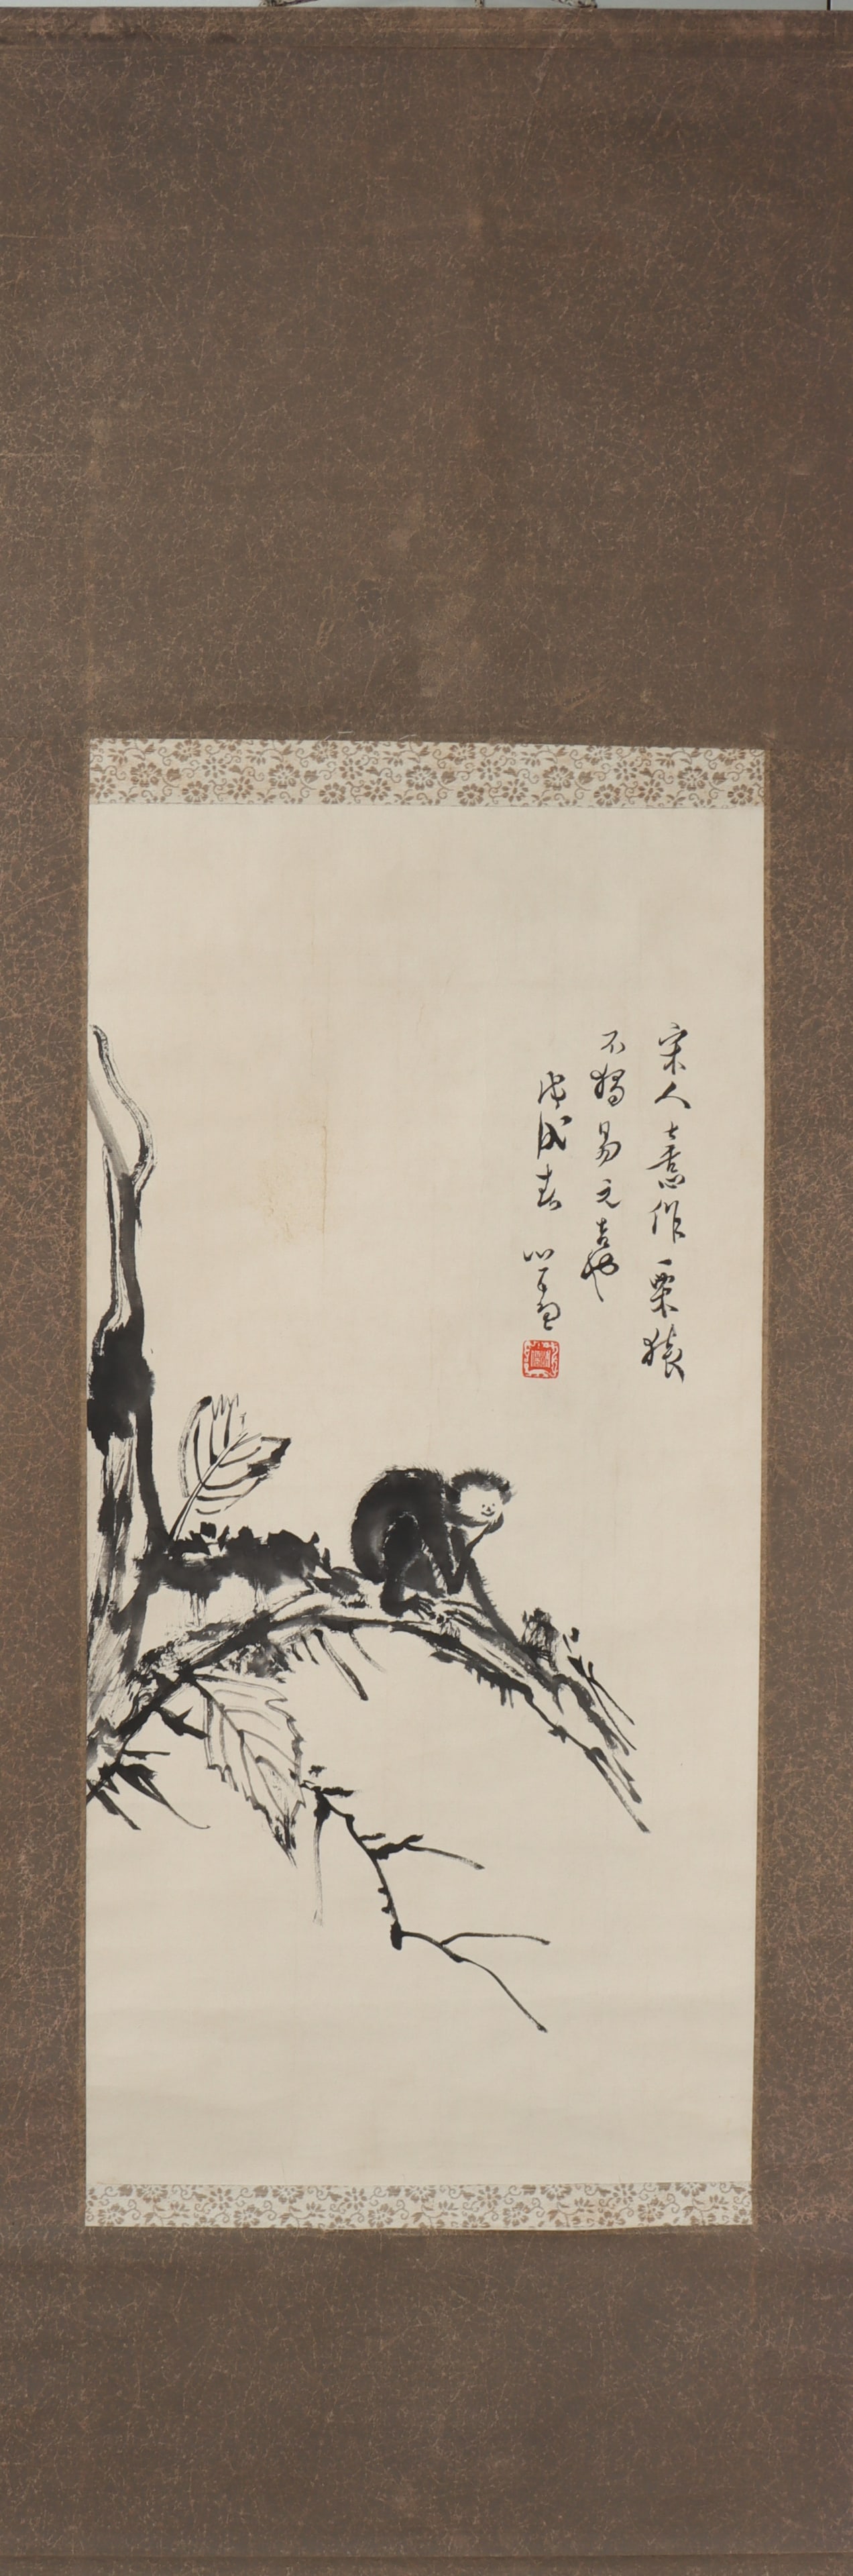 宋人喜作栗猿
不獨易元吉也
戊戌春 心畬